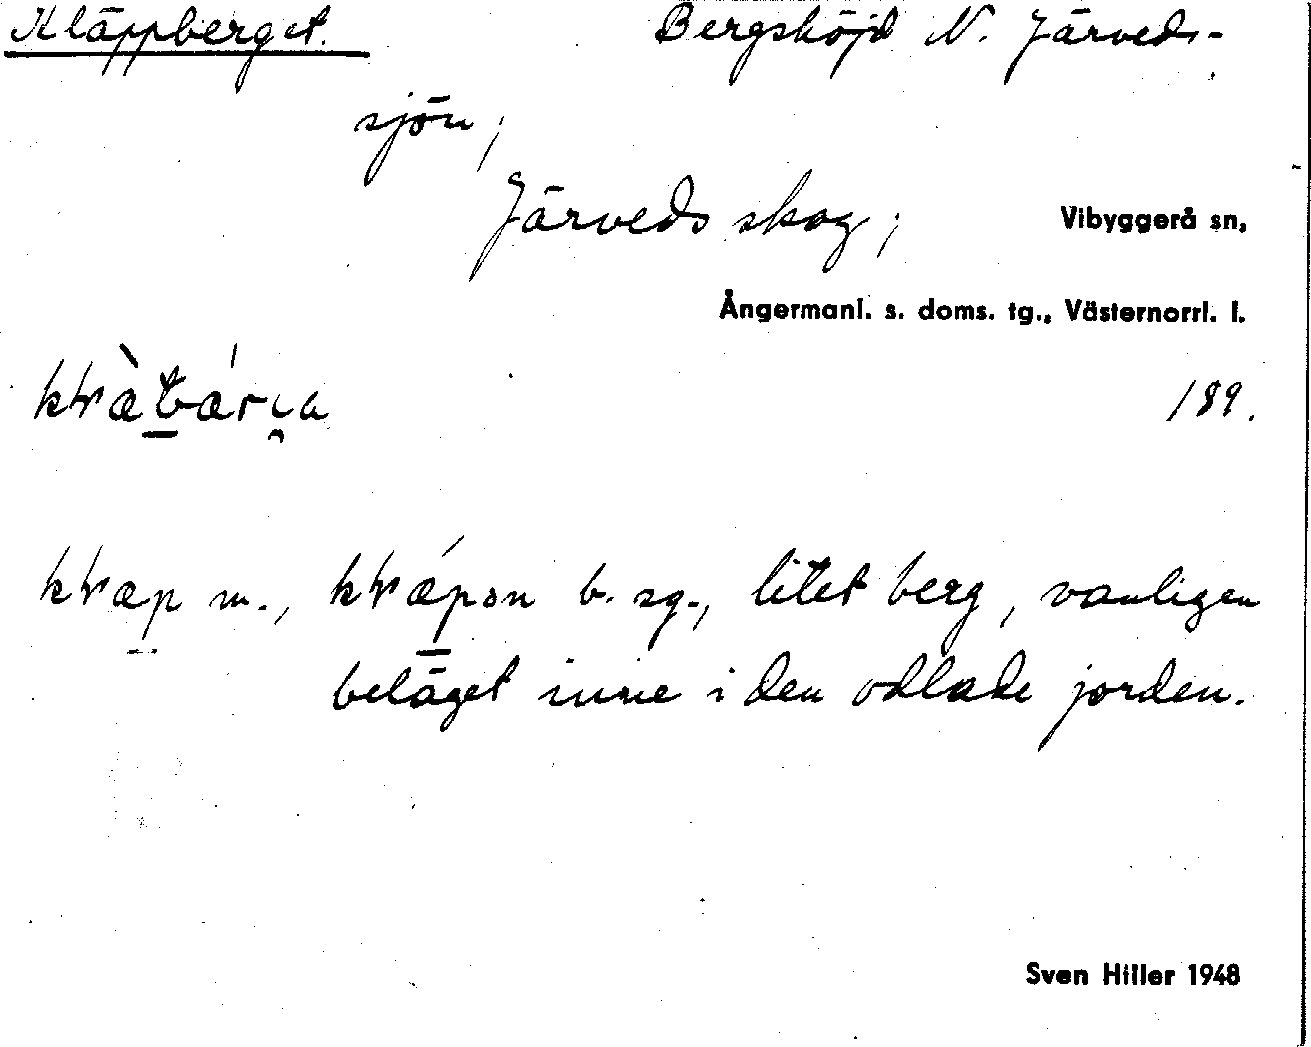 Kläppberget. Bergshöjd N. Järveds-
sjön;
Järveds skog; Vibyggerå sn,
Ångermanl. s. doms. tg., Västernorrl. l.
189.
m., b. sg., litet berg, vanligen
beläget inne i den odlade jorden.
Sven Hiller 1948